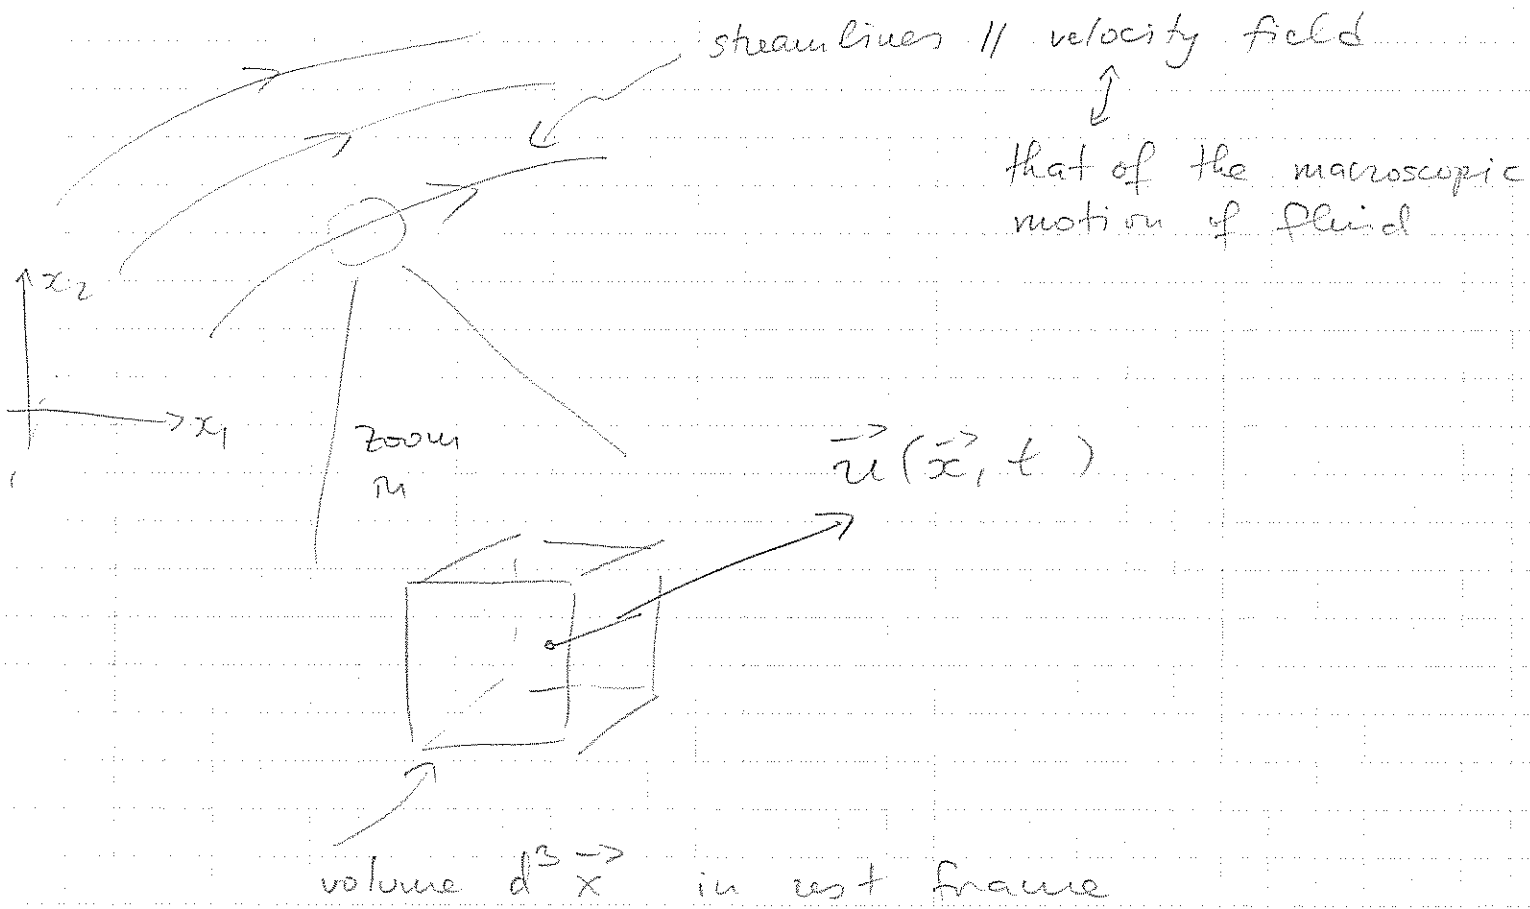 streamlines // velocity field
↕
that of the macroscopic
motion of fluid
x₂
x₁
zoom
in
u⃗(x⃗, t)
volume d³x⃗ in rest frame